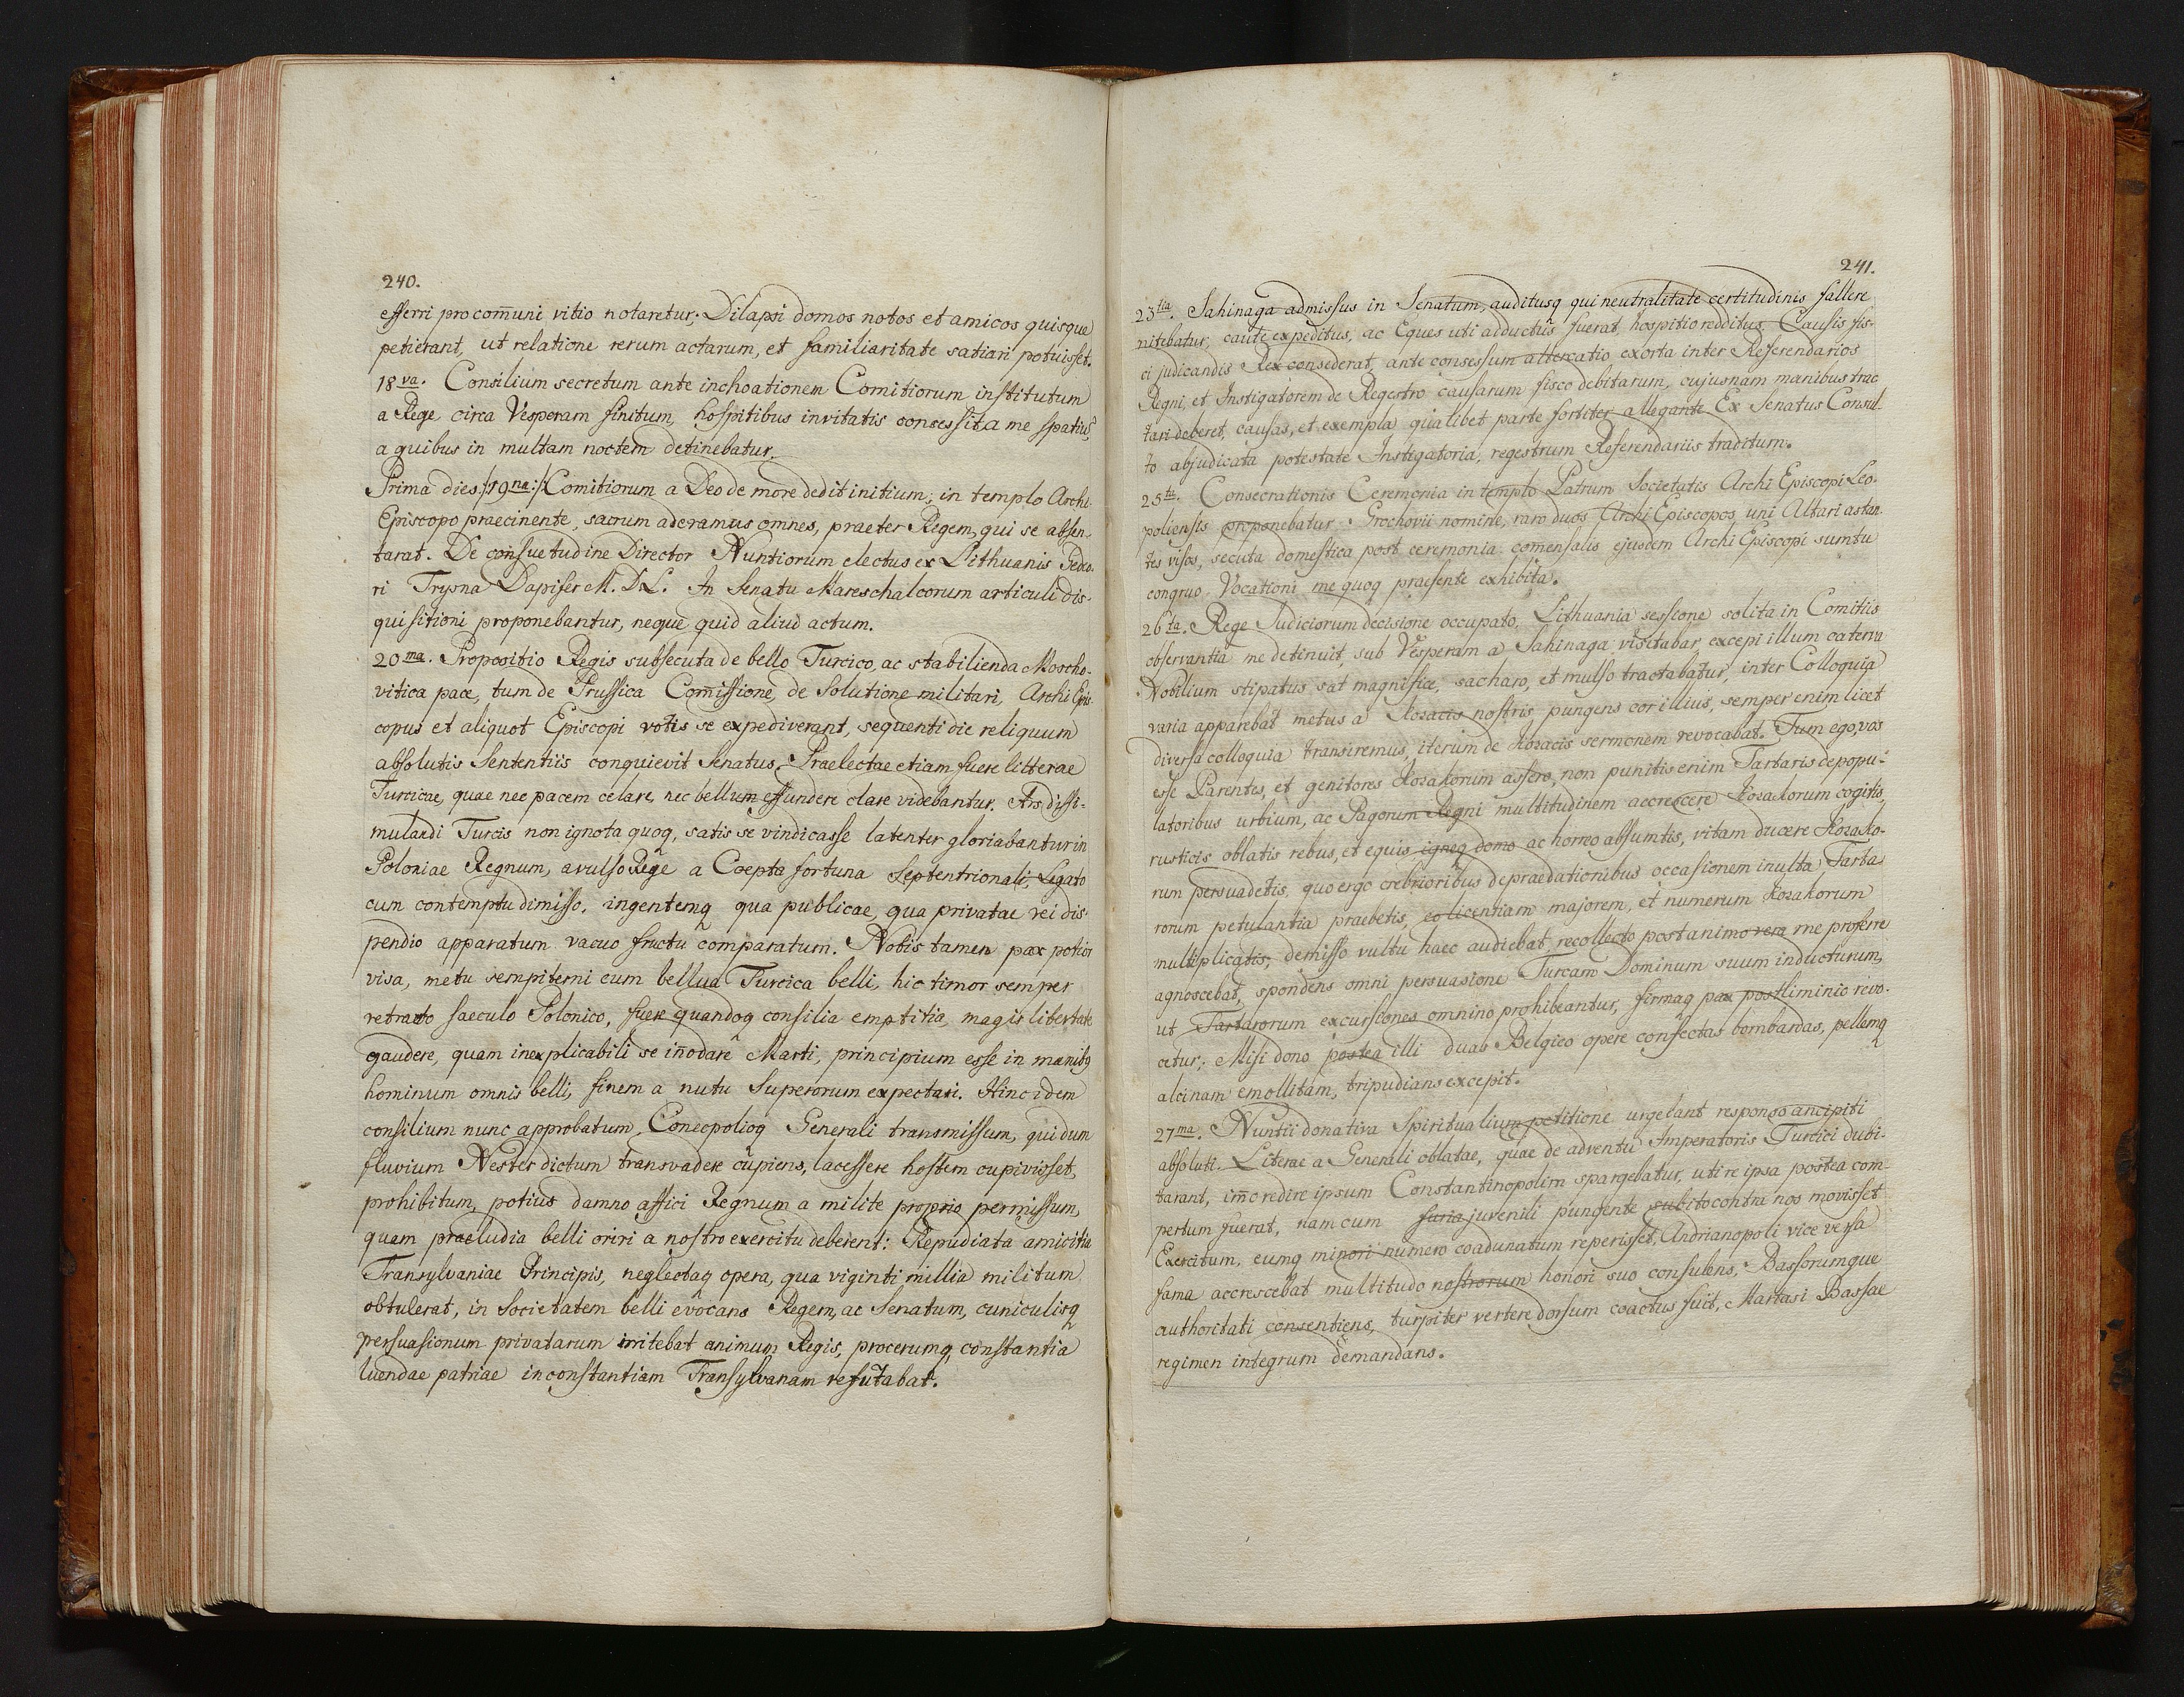 240.
efferri pro com̄uni vitio notaretur; Dilapsi domos notos et amicos quisque
petierant, ut relatione rerum actarum, et familiaritate satiari potuisset.
18va. Consilium secretum ante inchoationem Comitiorum institutum
a Rege circa Vesperam finitum, hospitibus invitatis concessit a me spatiū,
a quibus in multam noctem detinebatur.
Prima dies /:19na:/ Comitiorum a Deo de more dedit initium; in templo Archi-
Episcopo praecinente, sacrum aderamus omnes, praeter Regem, qui se absen-
tarat. De consuetudine Director Nuntiorum electus ex Lithuanis Fedo-
ri Trysna Dapifer M. D. L. In Senatu Mareschalcorum articuli dis-
quisitioni proponebantur, neque quid aliud actum.
20ma. Propositio Regis subsecuta de bello Turcico, ac stabilienda Moscho-
vitica pace, tum de Prussica Com̄issione, de Solutione militari, Archi Epis-
copus et aliquot Episcopi votis se expediverant, sequenti die reliquum
absolutis Sententiis conquievit Senatus. Praelectae etiam fuere litterae
Turcicae, quae nec pacem celare, nec bellum effundere clare videbantur. Ars dissi-
mulandi Turcis non ignota quoq, satis se vindicasse latenter gloriabantur in
Poloniae Regnum, avulso Rege a Coepta fortuna Septentrionali, Legato
cum contemptu dimisso, ingentemq qua publicae, qua privatae rei dis-
pendio apparatum vacuo fructu comparatum. Nobis tamen pax potior
visa, metu sempiterni cum bellua Turcica belli, hic timor semper
retracto saeculo Polonico, fuere quandoq consilia emptitia, magis libertate
gaudere, quam inexplicabili se in̄odare Marti, principium esse in manibq
hominum omnis belli, finem a nutu Superorum expectari. Hinc idem
consilium nunc approbatum, Conecpolioq Generali transmissum, qui dum
fluvium Nester dictum transvadere cupiens, lacessere hostem cupivisset,
prohibitum, potius damno affici Regnum a milite proprio permissum,
quam praeludia belli oriri a nostro exercitu deberent: Repudiata amicitia
Transylvaniae Principis, neglectaq opera, qua viginti millia militum
obtulerat, in Societatem belli evocans Regem, ac Senatum, cuniculisq
persuasionum privatarum irritebat animum Regis, procerumq, constantia
luendae patriae inconstantiam Transylvanam refutabat.
241.
23tia. Sahinaga admissus in Senatum, auditusq qui neutralitate certitudinis fallere
nitebatur, caute expeditus, ac Eques uti adductus fuerat, hospitio redditus. Causis fis-
ci judicandis Rex consederat, ante consessum altercatio exorta inter Referendarios
Regni, et Instigatorem de Regestro causarum fisco debitarum, cujusnam manibus trac
tari deberet, causas, et exempla qualibet parte fortiter allegante Ex Senatus Consul-
to abjudicata potestate Instigatoria, regestrum Referendariis traditum.
25ta. Consecrationis Ceremonia in templo Patrum Societatis Archi Episcopi Leo-
poliensis proponebatur. Grochovii nomine, raro duos Archi Episcopos uni Altari astan-
tes visos, secuta domestica post ceremonia comensalis ejusdem Archi Episcopi sumtu
congruo Vocationi me quoq praesente exhibita.
26ta. Rege Judiciorum decisione occupato, Lithuania sessione solita in Comitiis
observantia me detinuit, sub Vesperam a Sahinaga visitabar, excepi illum caterva
Nobilium stipatus sat magnifice, sacharo, et mulso tractabatur, inter Colloquia
varia apparebat metus a Kozacis nostris pungens cor illius, semper enim licet
diversa colloquia transiremus, iterum de Kozacis sermonem revocabat. Tum ego, vos
esse Parentes, et genitores Kozakorum assero, non punitis enim Tartaris depopu-
latoribus urbium, ac Pagorum Regni multitudinem accrescere Kozakorum cogitis,
rusticis oblatis rebus, et equis igneq domo ac horreo absumtis, vitam ducere Kozako-
rum persuadetis, quo ergo crebrioribus depraedationibus occasionem inulta Tarta-
rorum petulantia praebetis, eo licentiam majorem, et numerum Kozakorum
multiplicatis; demisso vultu haec audiebat, recollecto post animo vera me proferre
agnoscebat, spondens omni persuasione Turcam Dominum suum inducturum,
ut Tartarorum excursiones omnino prohibeantur, firmaq pax postliminio revo-
cetur; Misi dono postea illi duas Belgico opere confectas bombardas, pellemq
alcinam emollitam, tripudians excepit.
27ma. Nuntii donativa Spiritualium petitione urgebant responso ancipiti
absoluti. Literae a Generali oblatae, quae de adventu Imperatoris Turcici dubi-
tarant, im̄o redire ipsum Constantinopolim spargebatur, uti re ipsa postea com-
pertum fuerat, nam cum furia juvenili pungente subito contra nos movisset
Exercitum, eumq minori numero coadunatum reperisset, Andrianopoli vice versa
fama accrescebat multitudo nostrorum honori suo consulens, Bassorumque
authoritati consentiens, turpiter vertere dorsum coactus fuit, Martasi Bassae
regimen integrum demandans.